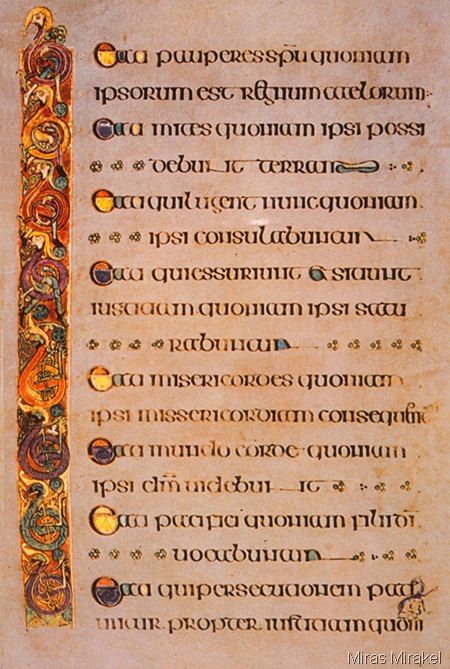 Beati pauperes spu quoniam
ipsorum est regnum caelorum
Beati mites quoniam ipsi possi
debunt terram
Beati qui lugent nunc quoniam
ipsi consulabuntur
Beati qui essuriunt & sitiunt
iustitiam quoniam ipsi satu
rabuntur
Beati misericordes quoniam
ipsi missericordiam
Beati mundo corde quoniam
ipsi dm uidebunt
Beati pacifici quoniam filii di
uocabuntur
Beati qui persecutionem pati
untur propter iustitiam quoni
Miras Mirakel